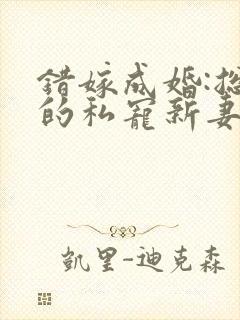 錯嫁成婚:
的私寵新妻
凱里-迪克森